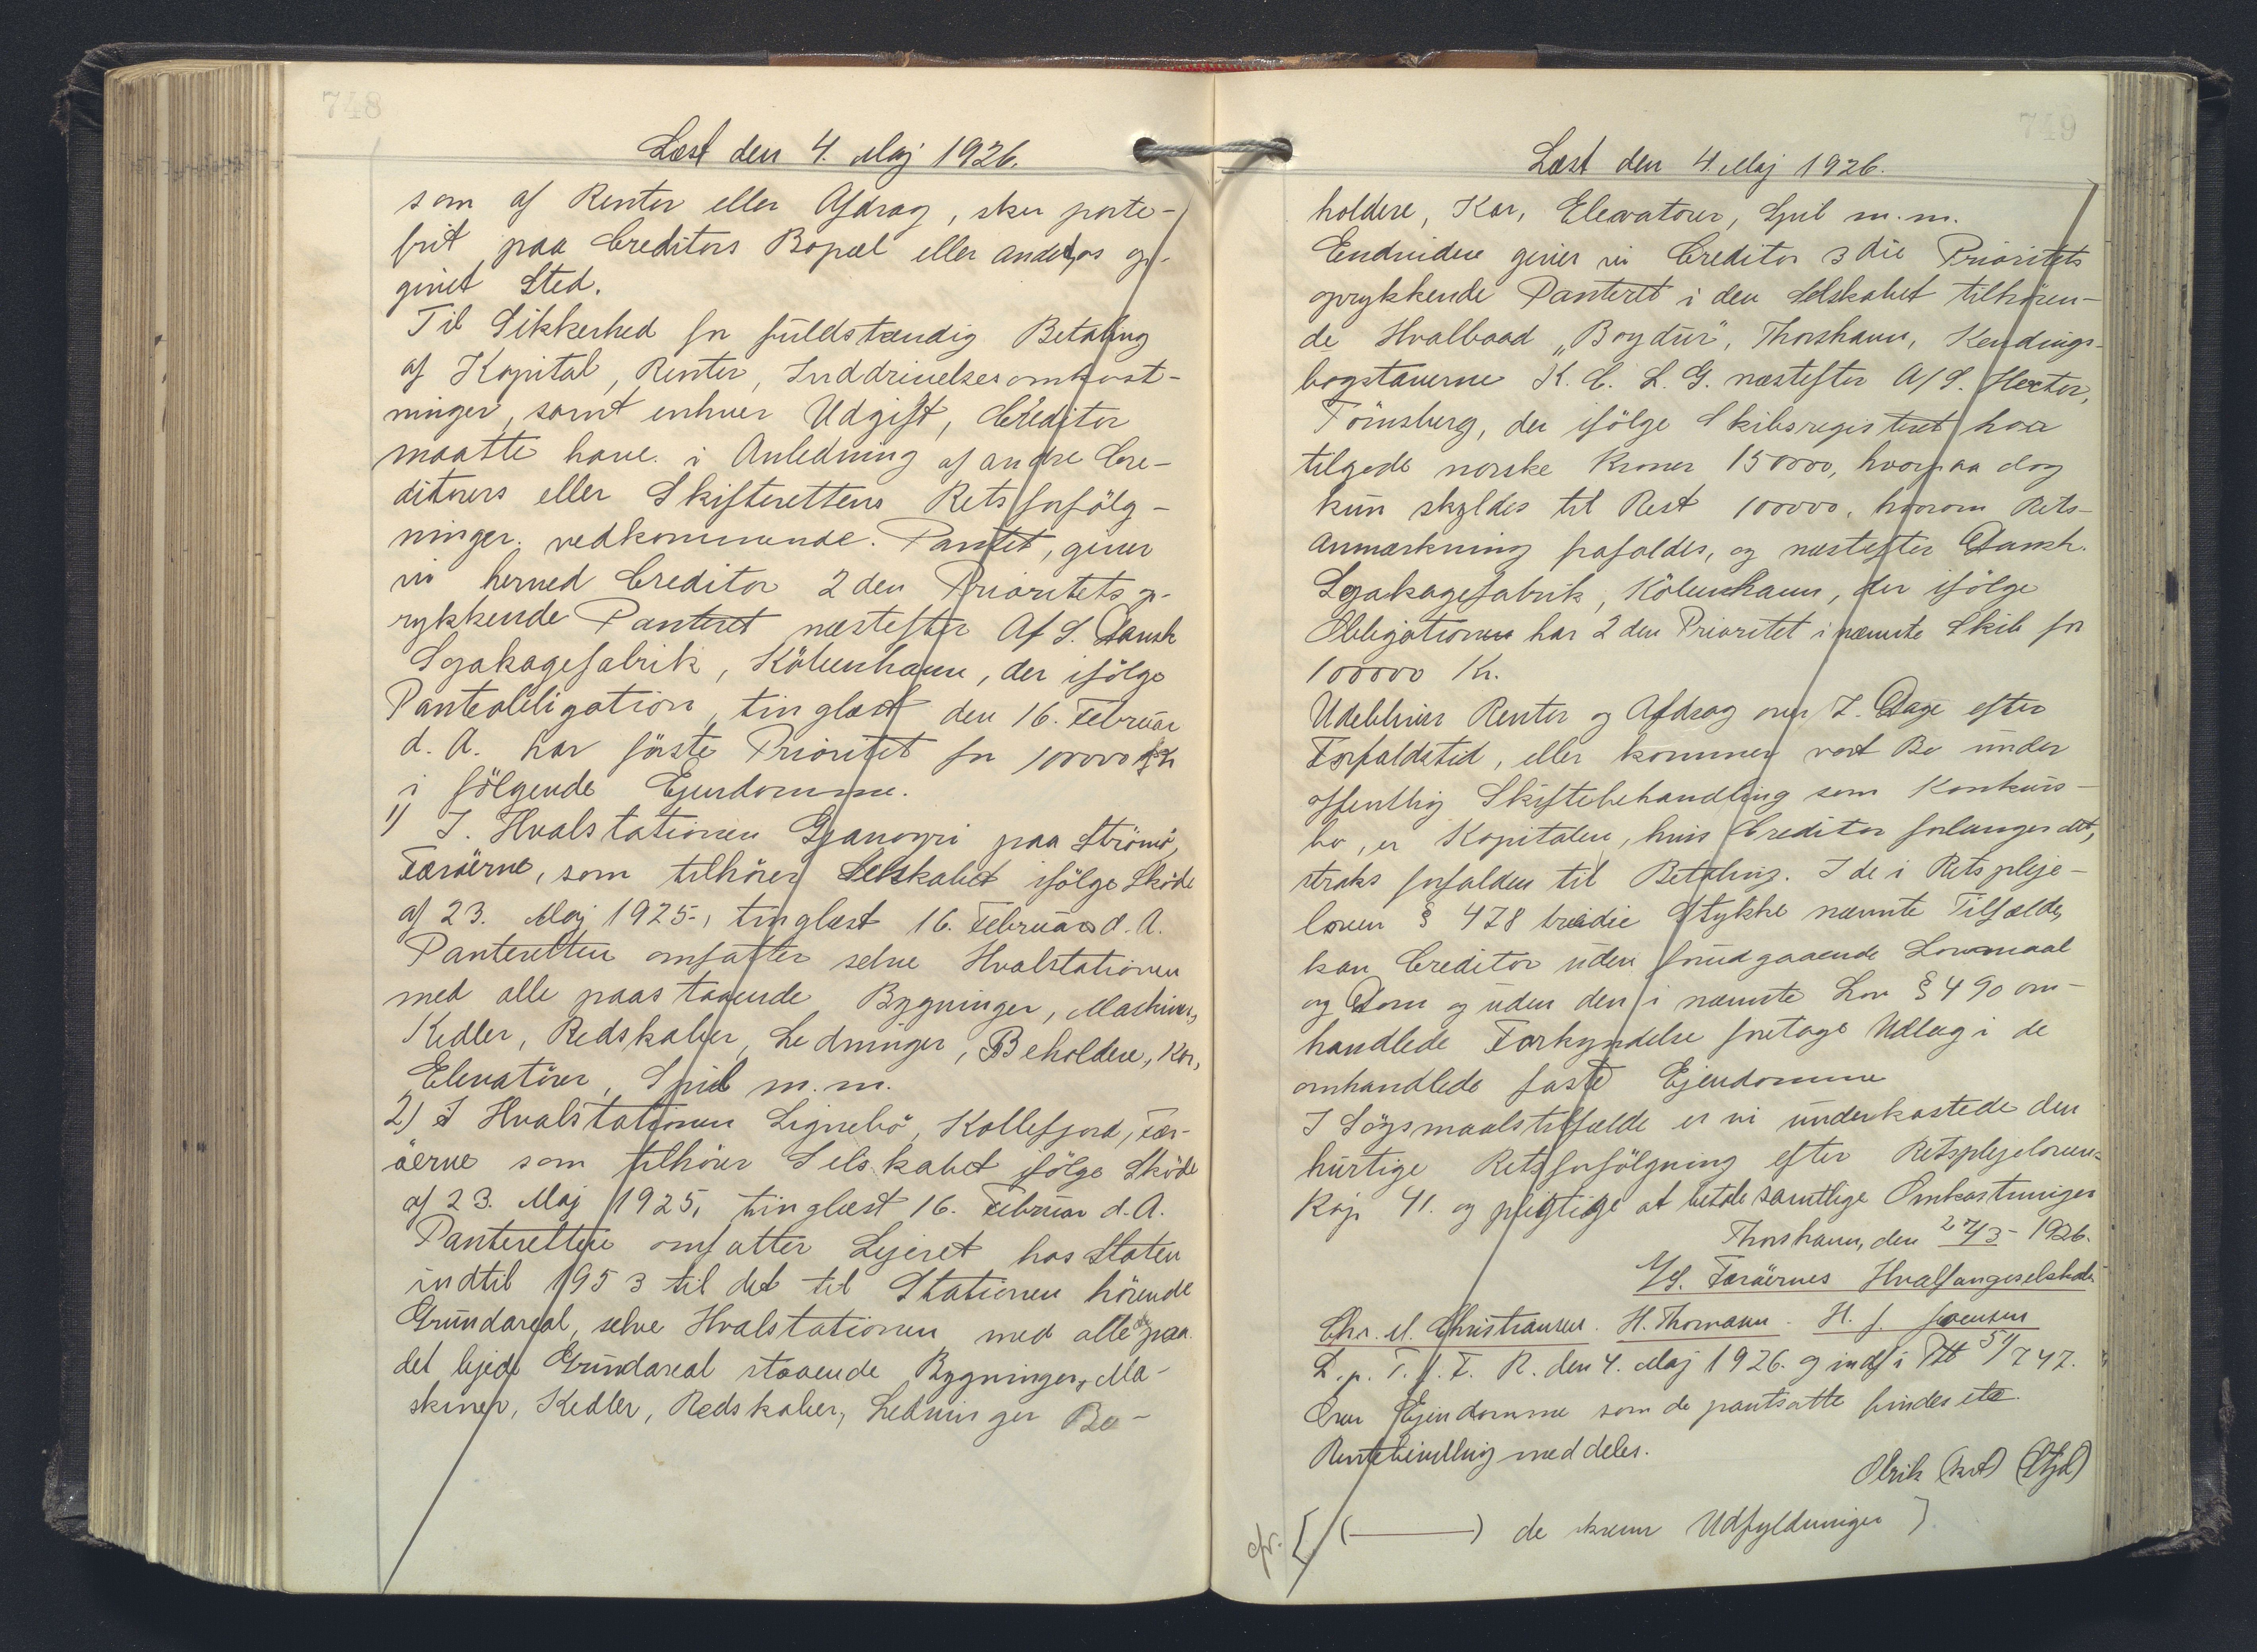 748
Læst den 4. Maj 1926.
som af Renter eller Afdrag, sker porto-
frit paa Creditors Bopæl eller andet, os op-
givet Sted.
Til Sikkerhed for fuldstændig Betaling
af Kapital, Renter, Inddrivelsesomkost-
ninger, samt enhver Udgift, Creditor
maatte have i Anledning af andre Cre-
ditorers eller Skifterettens Retsforfölg-
ninger vedkommende Pantet, giver
vi herved Creditor 2den Prioritets op-
rykkende Panteret næstefter A/S. Dansk
Sojakagefabrik, Köbenhavn, der ifölge
Panteobligation, tinglæst den 16. Februar
d. A. har förste Prioritet for 100000 Kr
i fölgende Ejendomme.
1) I. Hvalstationen Gjanoyri paa Strömö,
Færöerne, som tilhörer Selskabet ifölge Sköde
af 23. Maj 1925, tinglæst 16. Februar d. A.
Panteretten omfatter selve Hvalstationen
med alle paastaaende Bygninger, Maskiner,
Kedler, Redskaber, Ledninger, Beholdere, Kar,
Elevatorer, Spil m.m.
2) I Hvalstationen Lignebö, Kollefjord, Fær-
öerne som tilhörer Selskabet ifölge Sköde
af 23. Maj 1925, tinglæst 16. Februar d. A.
Panteretten omfatter Lejeret hos Staten
indtil 1953 til det til Stationen hörende
Grundareal, selve Hvalstationen med alle de paa
det lejede Grundareal staaende Bygninger, Ma-
skiner, Kedler, Redskaber, Ledninger Be-
749
Læst den 4. Maj 1926.
holdere, Kar, Elevatorer, Spil m.m.
Endvidere giver vi Creditor 3die Prioritets
oprykkende Panteret i den Selskabet tilhören-
de Hvalbaad "Boydur", Thorshavn, Kendings-
bogstaverne K. C. L. G. næstefter A/S. Hector,
Tönsberg, der ifölge Skibsregisteret har
tilgode norske Kroner 150000, hvorpaa dog
kun skyldes til Rest 100000, hvorom Rets-
anmærkning frafaldes, og næstefter Dansk
Sojakagefabrik, Köbenhavn, der ifölge
Obligationen har 2den Prioritet i nævnte Skib for
100000 Kr.
Udebliver Renter og Afdrag over 7. Dage efter
Forfaldstid, eller kommer vort Bo under
offentlig Skiftebehandling som Konkurs-
bo, er Kapitalen, hvis Creditor forlanger det,
straks forfalden til Betaling. I de i Retspleje-
loven § 478 tredie Stykke nævnte Tilfælde,
kan Creditor uden forudgaaende Lovmaal
og Dom og uden den i nævnte Lov § 490 om-
handlede Forkyndelse foretage Udlæg i de
omhandlede faste Ejendomme
I Sögsmaalstilfælde er vi underkastede den
hurtige Retsforfölgning efter Retsplejelovens
Kap 41. og pligtige at betale samtlige Omkostninger
Thorshavn, den 27/3 - 1926.
A/S. Færöernes Hvalfangerselskab
Chr. M. Christiansen. H. Thomann. H. J. Joensen
L. p. T. f. F. R. den 4. Maj 1926. og indf i Ptb 54/747.
Over Ejendomme som de pantsatte findes ete
Rentebevilling meddeles.
Olrik (kst) (Stpl)
cfr. [ (———) de skrevne Udfyldninger ]